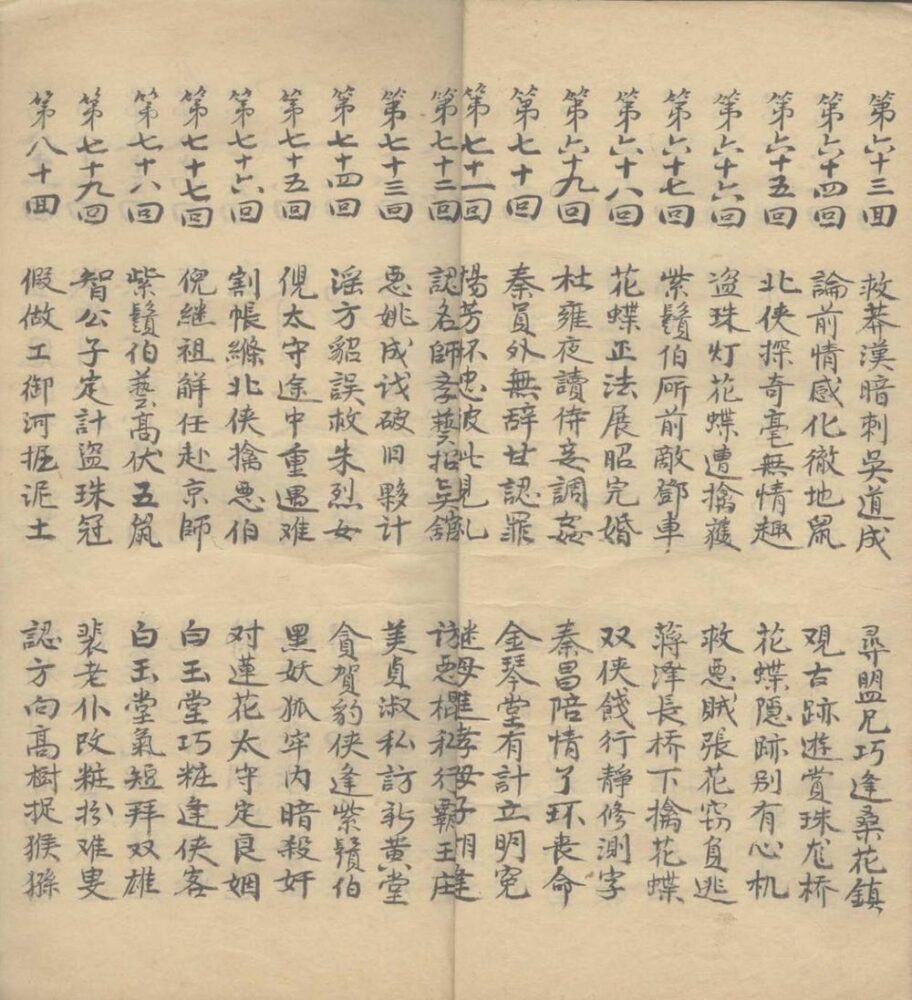 第六十三回 救莽漢暗刺吳道成 尋盟兄巧逢桑花鎮
第六十四回 論前情感化徹地鼠 观古跡遊賞珠龙桥
第六十五回 北侠探奇毫無情趣 花蝶隐跡别有心机
第六十六回 盗珠灯花蝶遭擒獲 救悪賊張花窃負逃
第六十七回 紫鬚伯所前敵鄧車 蒋泽長桥下擒花蝶
第六十八回 花蝶正法展昭完婚 双侠餞行静修測字
第六十九回 杜雍夜讀侍妾調姦 秦昌陪情了环丧命
第七十回 秦員外無辞甘認罪 金琴堂有計立明冤
第七十一回 楊芳怀忠彼此見礼 继母孝母子相逢
第七十二回 認名師学藝招贤舘 访悪棍私行霸王庄
第七十三回 悪姚成识破旧夥计 美貞淑私訪新黄堂
第七十四回 淫方貂誤救朱烈女 貪賀豹侠逢紫鬚伯
第七十五回 倪太守途中重遇难 黑妖狐牢内暗殺奸
第七十六回 割帳縧北侠擒悪伯 对蓮花太守定良姻
第七十七回 倪継祖解任赴京師 白玉堂巧粧逢侠客
第七十八回 紫鬚伯藝高伏五鼠 白玉堂氣短拜双雄
第七十九回 智公子定計盜珠冠 裴老仆改粧扮难叟
第八十回 假做工御河挖泥土 認方向高樹捉猴猻